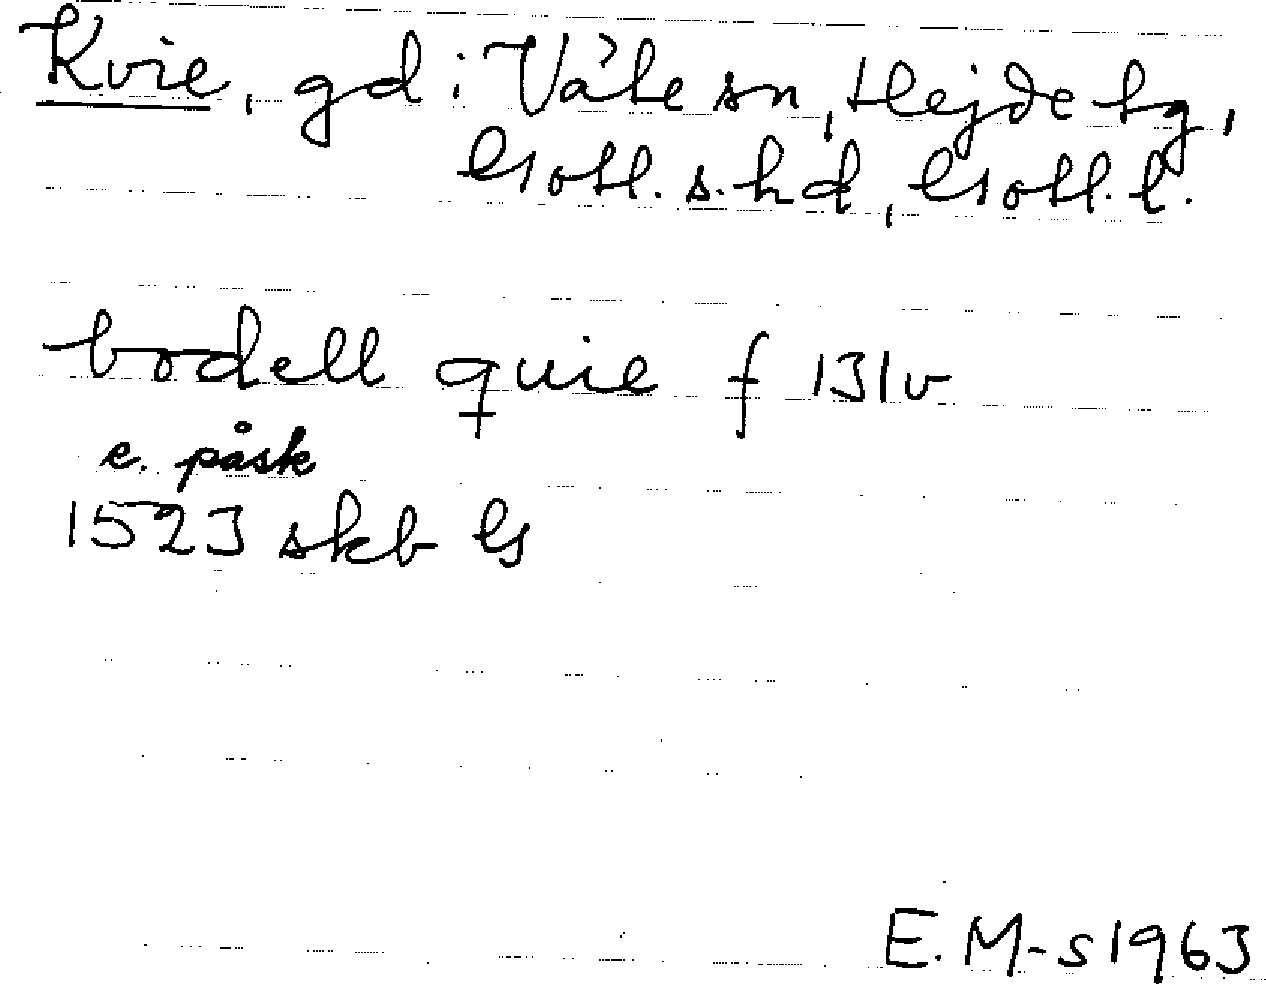 Kvie, gd i Väte sn, Hejde tg,
Gotl. s. hd, Gotl. l.
bodell quie f 131v
e. påsk
1523 skb G
E. M-s 1963